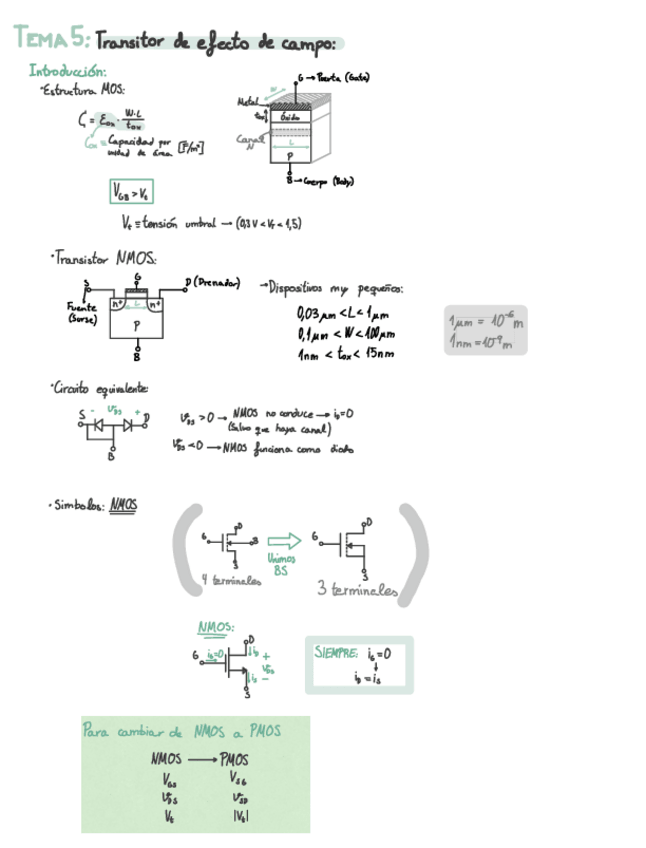 TEMA 5: Transitor de efecto de campo:
Introducción:
·Estructura MOS:
ζ = εox · W·L / tox
Cox ≡ Capacidad por
unidad de área [F/m²]
G → Puerta (Gate)
W
Metal
tox
Óxido
Canal
N
L
P
B → Cuerpo (Body)
VGB > Vt
Vt ≡ tensión umbral → (0,3 V < VT < 1,5)
·Transistor NMOS:
S
G
D (Drenador)
n+
L
n+
Fuente
(Surse)
P
B
→ Dispositivos muy pequeños:
0,03 μm < L < 1 μm
0,1 μm < W < 100 μm
1nm < tox < 15nm
1 μm = 10⁻⁶ m
1nm = 10⁻⁹ m
·Circuito equivalente:
S - vDS + D
B
vDS > 0 → NMOS no conduce → iD = 0
(Salvo que haya canal)
vDS < 0 → NMOS funciona como diodo
·Simbolos: NMOS
G
D
B
S
4 terminales
Unimos
BS
G
D
S
3 terminales
NMOS:
G
iG=0
D
iD
+
vDS
-
iS
S
SIEMPRE: iG = 0
↓
iD = iS
Para cambiar de NMOS a PMOS
NMOS → PMOS
VGS VSG
vDS vSD
Vt |Vt|